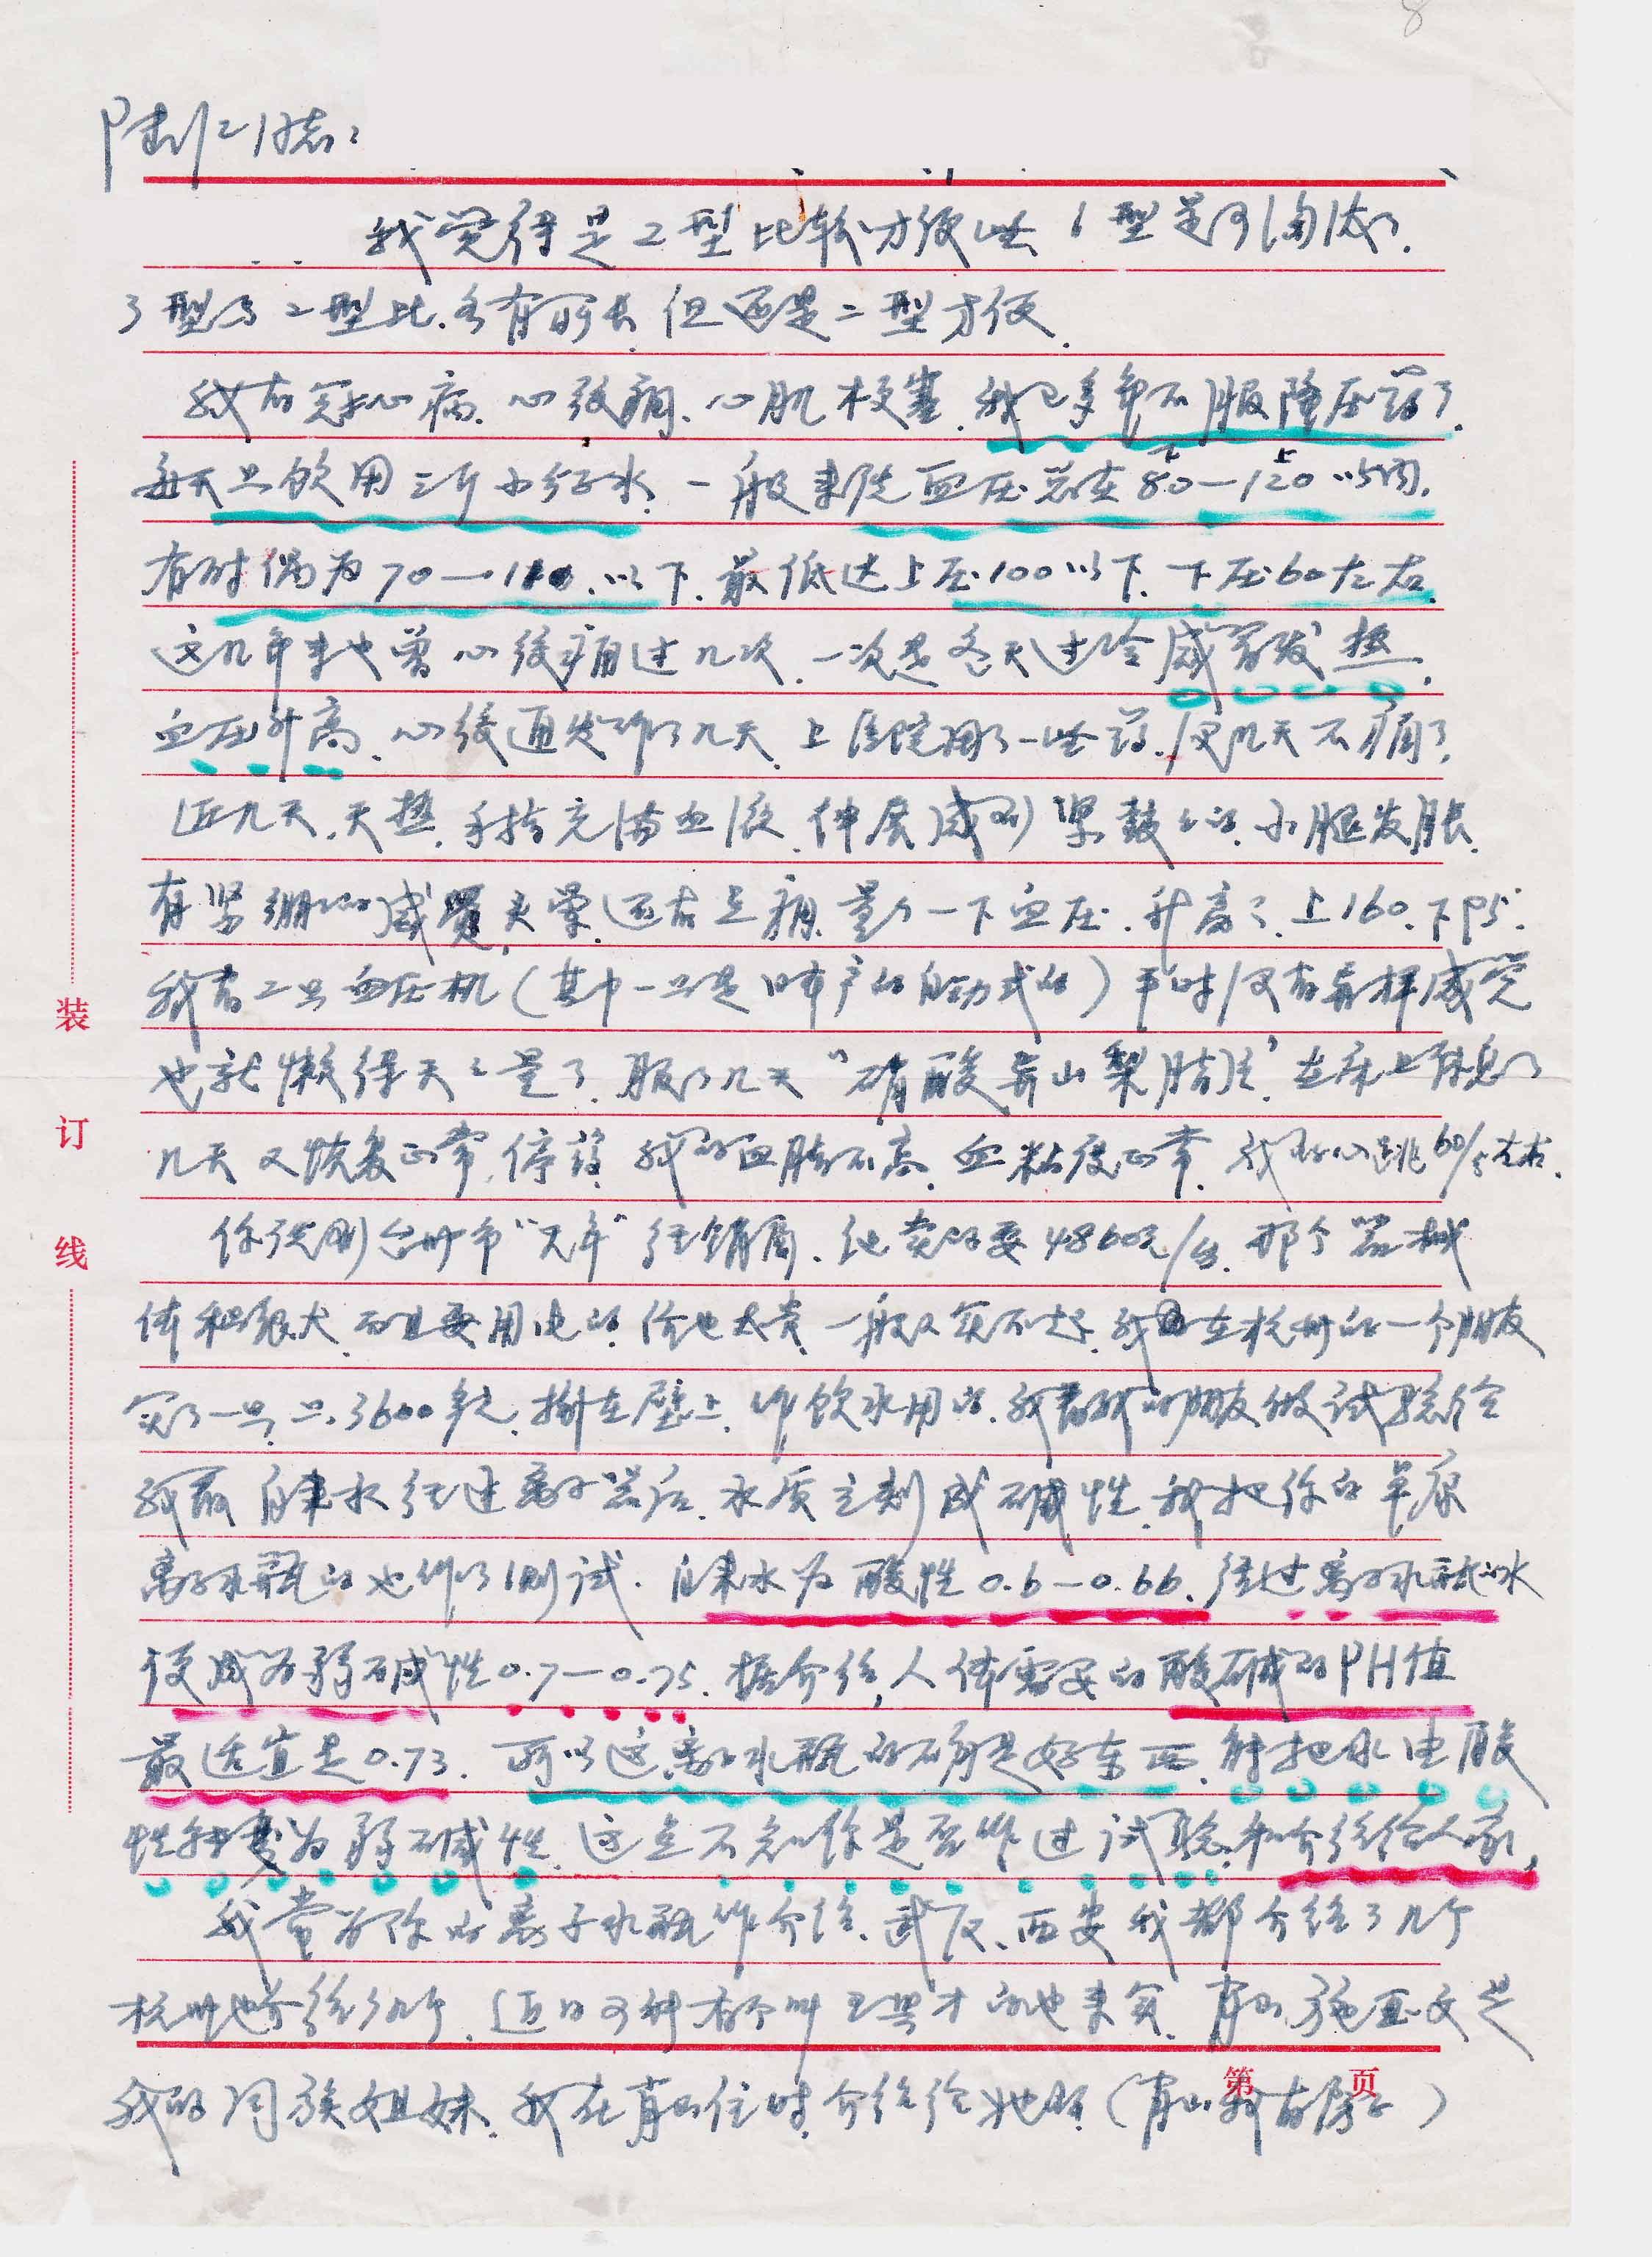 8
同志：
我觉得是2型比较方便些 1型是可淘汰了.
3型与2型比.各有所长 但还是二型方便.
我有冠心病.心绞痛.心肌梗塞.我已多年不服降压药了.
每天只饮用三斤水 一般来说血压总在80—120以内.
下 上
有时偶为70—110.以下.最低达上压100以下.下压60左右.
这几年来也曾心绞痛过几次.一次是冬天过冷感冒发热.
血压升高.心绞通发作了几天.上医院用了一些药.没几天不痛了.
近几天.天热.手指充满血液.伸展感到 小腿发胀.
有紧绷的感觉 头晕.还有点痛.量了一下血压.升高了.上160.下95.
我有二只血压机(其中一只是日本产的自动式的)平时没有异样感觉
也就懒得天天量了.服了几天"硝酸异山梨脂片"在床上休息了
几天又恢复正常.停药.我的血脂不高.血粘度正常.我的心跳60/分左右.
你说到台州市"天年"经销商.他卖的要4860元/台.那个器械
体积很大.而且要用电的.价也太贵.一般人买不起.我在杭州的一个朋友
买了一只.只3600多元.挂在壁上.作饮水用的.我看我的朋友做试验给
我看 自来水经过离子器后.水质立刻成碱性.我把你的卓康
离子水瓶的也作了测试.自来水为酸性0.6—0.66.经过离子水瓶的水
便成为弱碱性0.7—0.75.据介绍,人体需要的酸碱的PH值
最适宜是0.73.所以这离子水瓶的确是好东西.能把水由酸
性转变为弱碱性.这点不知你是否作过试验.和介绍给人家,
我常为你的离子水瓶作介绍.武汉、西安我都介绍了几个
杭州也介绍了几个.近日又有个叫 的也来买. 施亚文是
我的同族姐妹.我在 住时.介绍给她的(青山我有房子)
装
订
线
第 页